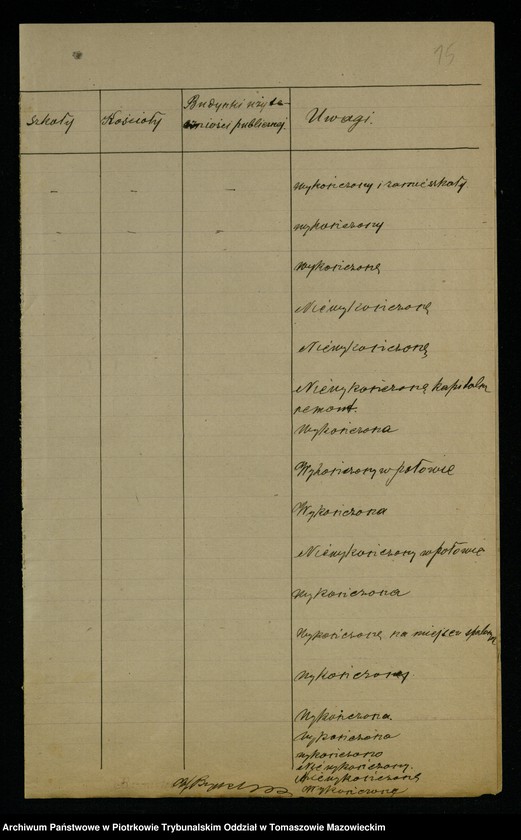 15
Szkoły
Kościoły
Budynki użytecz
ności publicznej.
Uwagi.
— — — wykończony i zamieszkały.
wykończony
wykończoną
Niewykończoną
Niewykończoną
Niewykończoną kapitalny
remont.
Wykończona
Wykończony w połowie
Wykończona
Niewykończony w połowie
wykończona
Wykończoną na miejsce
wykończony
Wykończona.
wykończona
wykończono
Niewykończony.
Niewykończoną
Wykończoną
Archiwum Państwowe w Piotrkowie Trybunalskim Oddział w Tomaszowie Mazowieckim